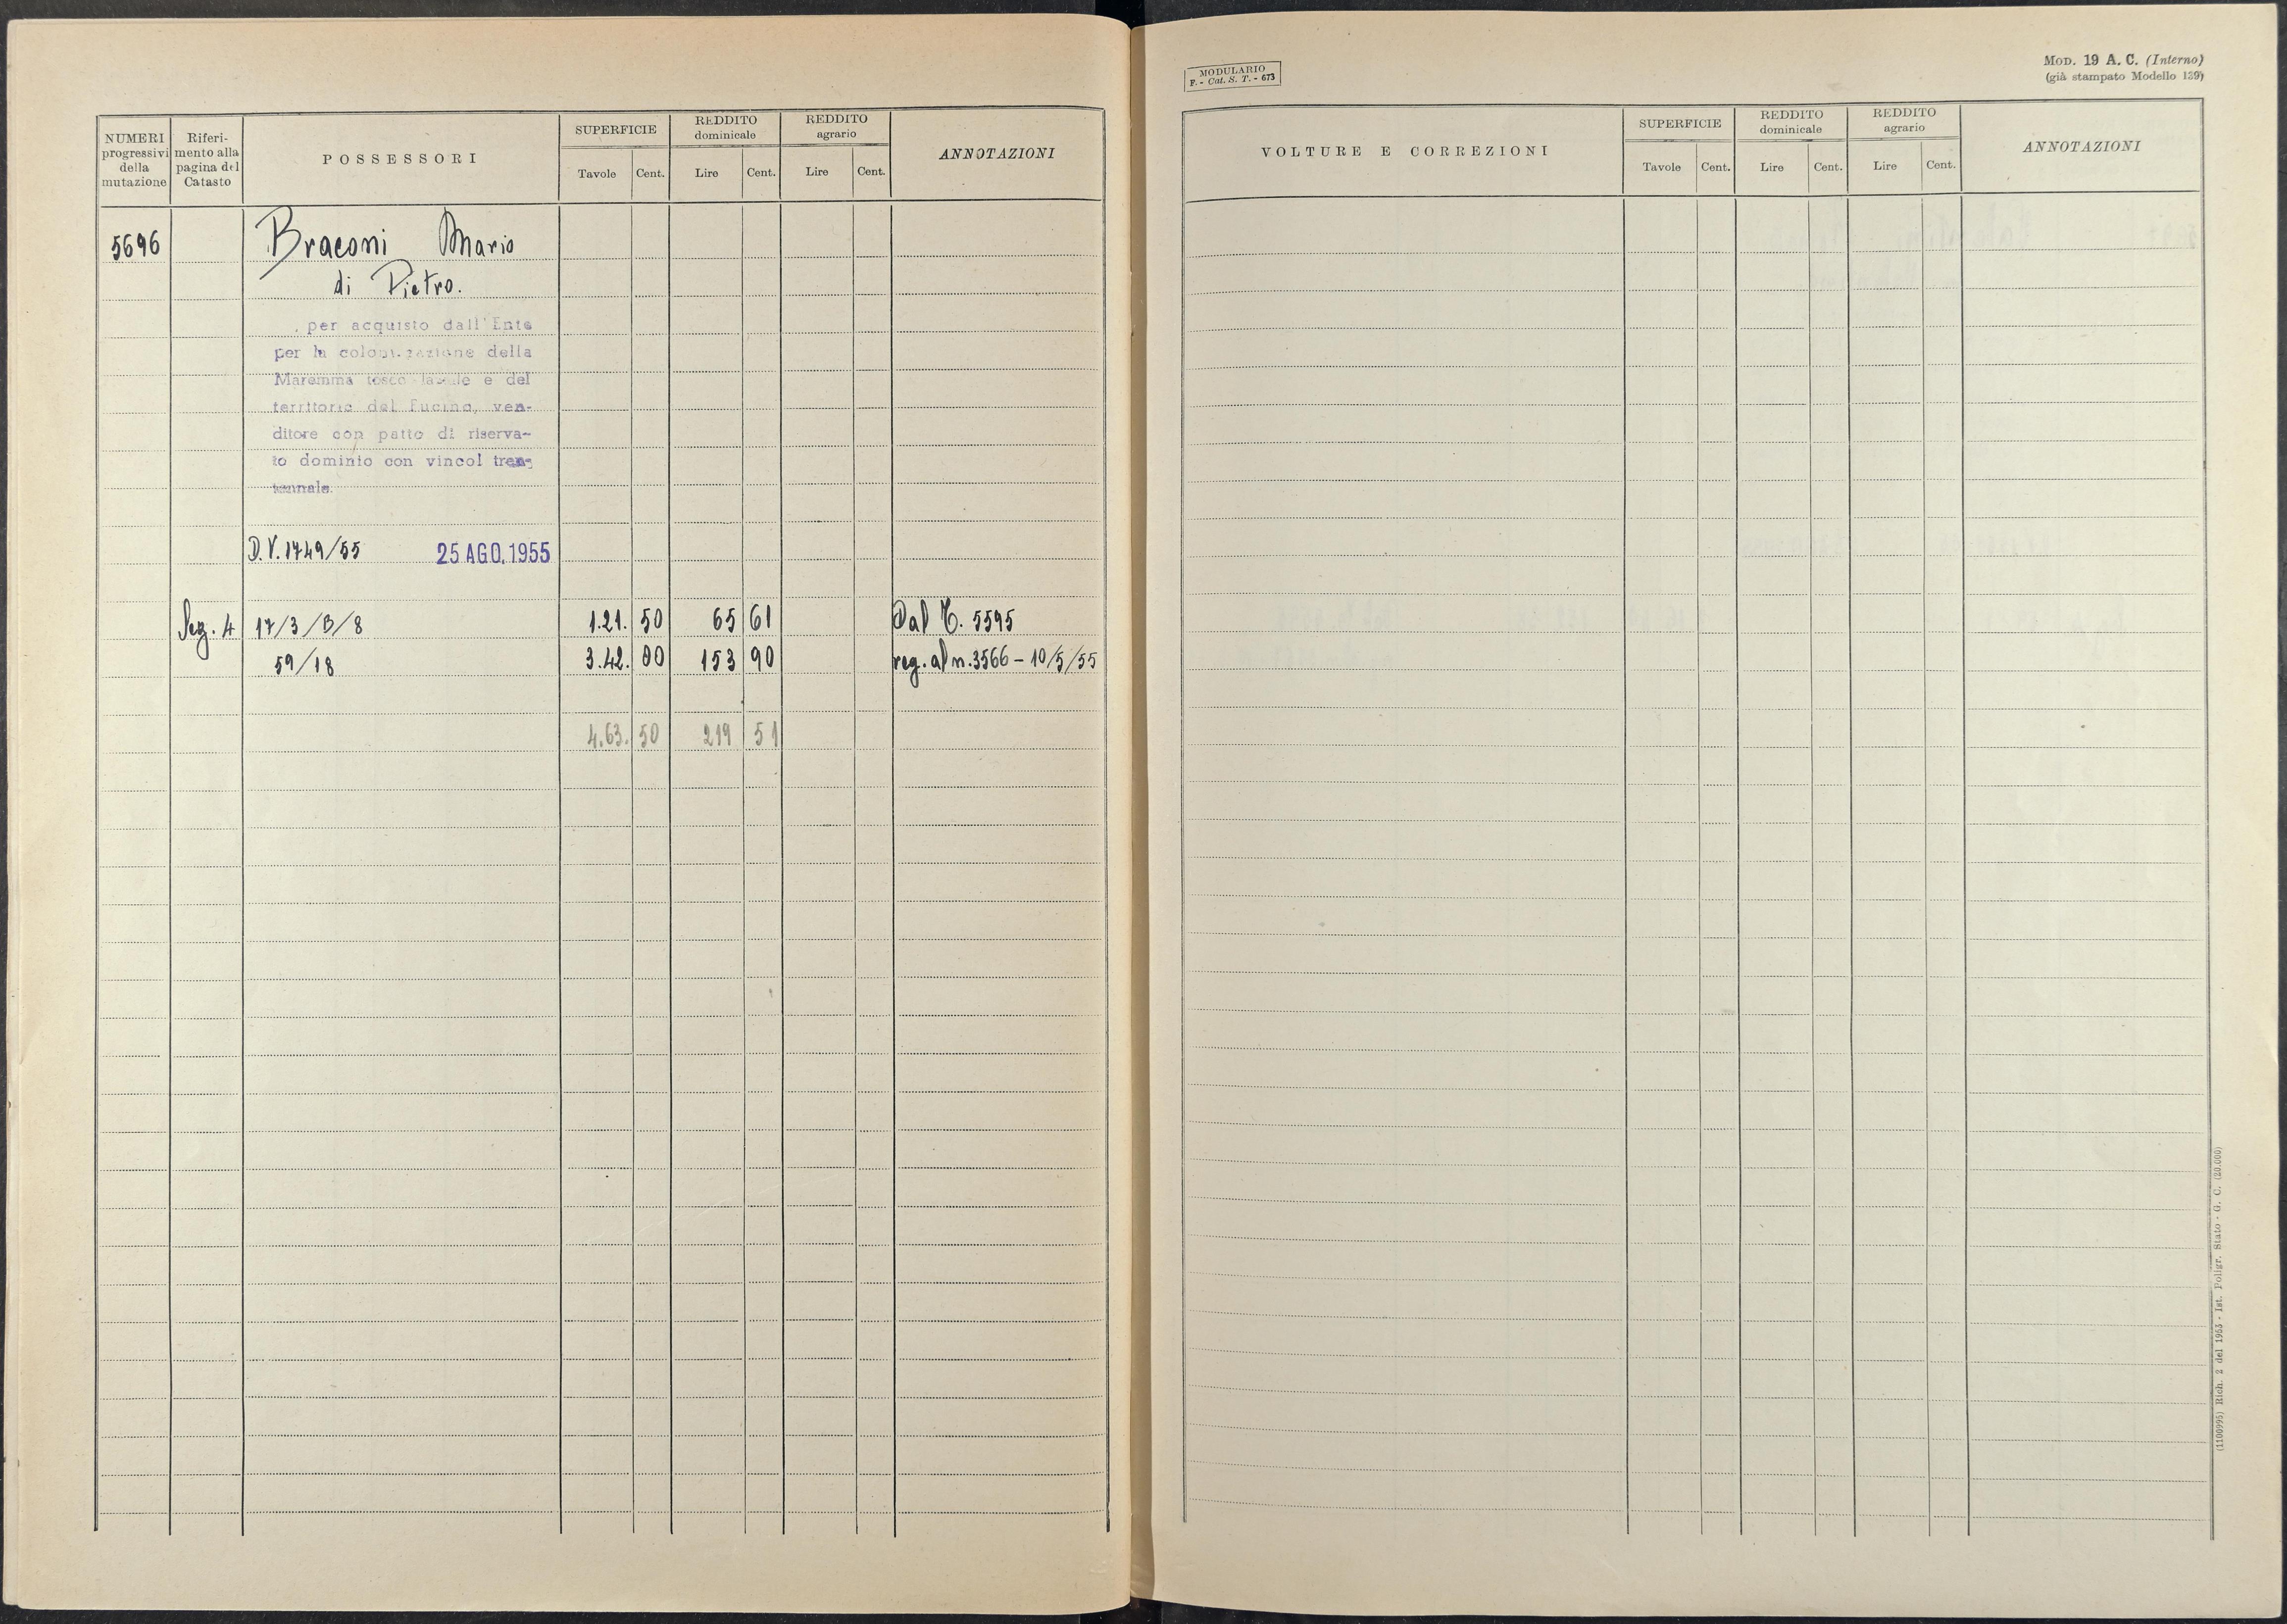 NUMERI progressivi della mutazione
Riferi-mento alla pagina del Catasto
POSSESSORI
SUPERFICIE
Tavole Cent.
REDDITO dominicale
Lire Cent.
REDDITO agrario
Lire Cent.
ANNOTAZIONI
5696 Braconi Mario
di Pietro.
, per acquisto dall'Ente
per la colonizzazione della
Maremma tosco laziale e del
territorio del Fucino, ven-
ditore con patto di riserva-
to dominio con vincol tren-
tennale.
D.V. 1749/55 25 AGO. 1955
Sez. 4 17/3/B/8 1.21. 50 65 61 Dal C. 5595
59/18 3.42. 00 153 90 reg. al n. 3566 - 10/5/55
4.63. 50 219 51
MODULARIO
F. - Cat. S. T. - 673
MOD. 19 A. C. (Interno)
(già stampato Modello 129)
VOLTURE E CORREZIONI
SUPERFICIE
Tavole Cent.
REDDITO dominicale
Lire Cent.
REDDITO agrario
Lire Cent.
ANNOTAZIONI
(1100995) Rich. 2 del 1953 - Ist. Poligr. Stato - G. C. (20.000)